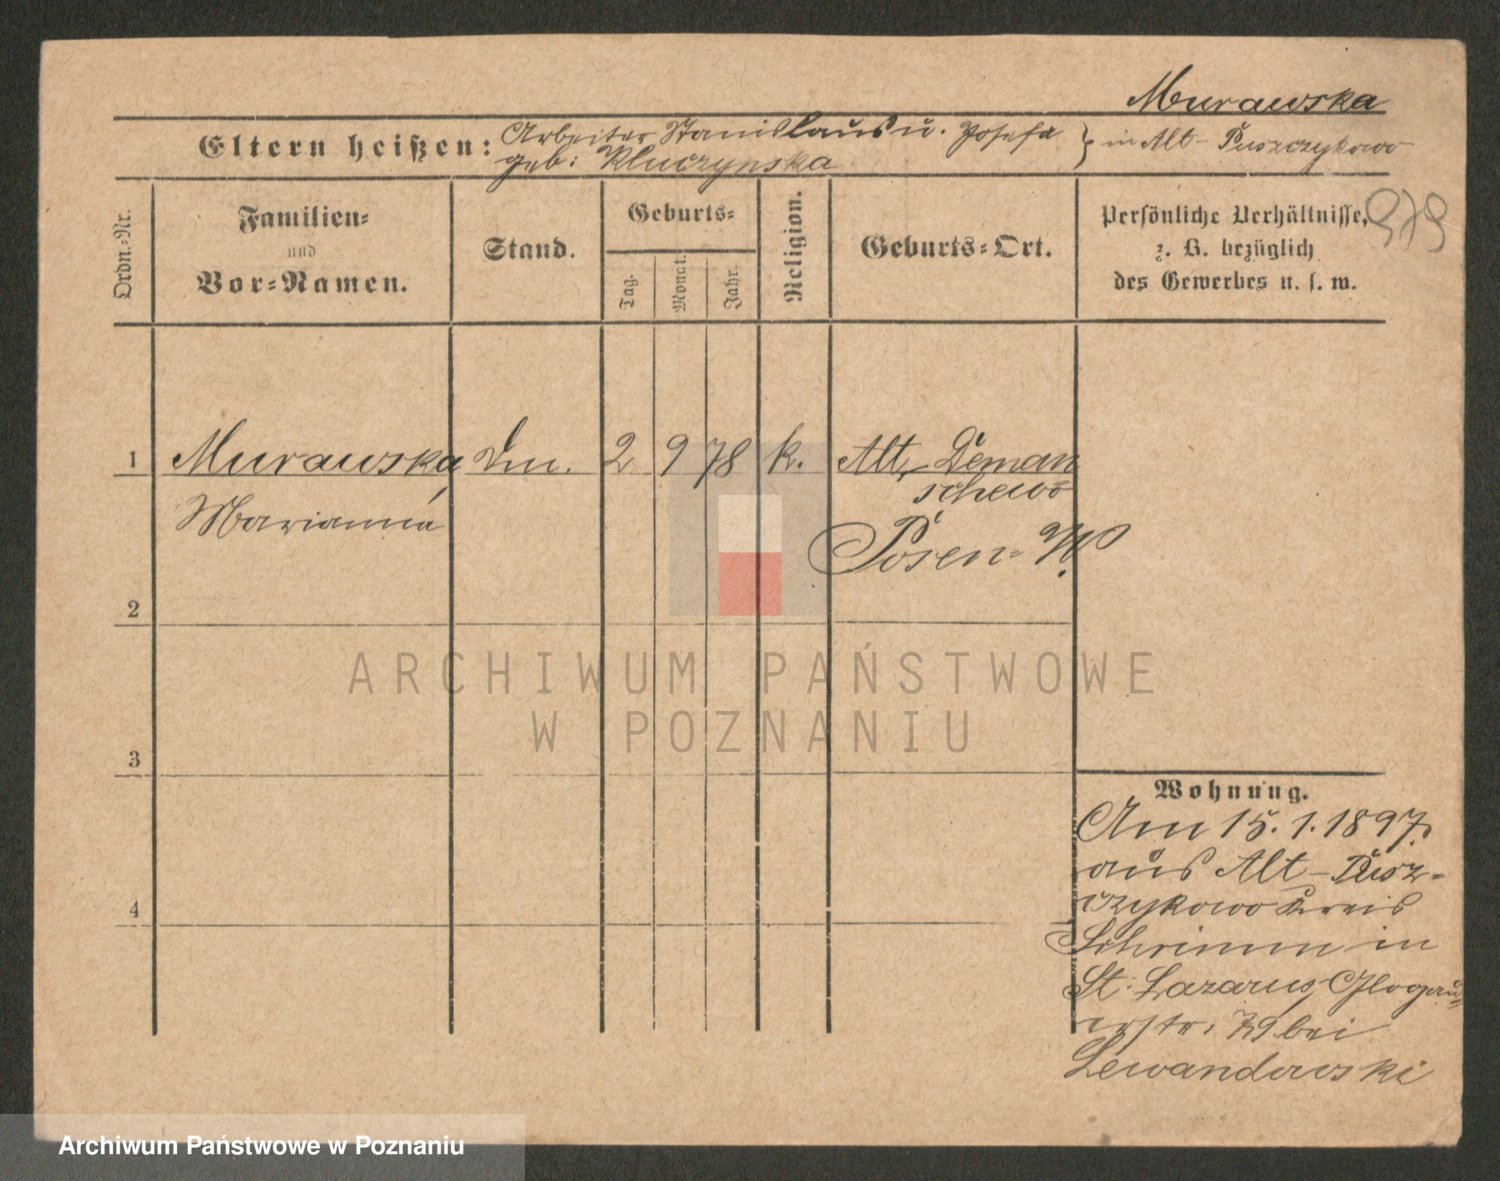 Murawska
Eltern heißen: Arbeiter Stanislaus u. Josefa } in Alt-Puszczykowo
geb: Kluczynska
979
Ordn.-Nr.
Familien-
und
Vor-Namen.
Stand.
Geburts-
Tag.
Monat.
Jahr.
Religion.
Geburts-Ort.
Persönliche Verhältnisse,
z. B. bezüglich
des Gewerbes u. s. w.
1 Murawska 2 9 78 k. Alt Deman
schewo
Marianna
Posen-W.
2
ARCHIWUM PAŃSTWOWE
W POZNANIU
3
Wohnung.
Am 15.1.1897.
aus Alt-Pusz-
czykowo Kreis
4
Schrimm in
St. Lazarus, Glogau-
erstr. 79 bei
Lewandowski
Archiwum Państwowe w Poznaniu